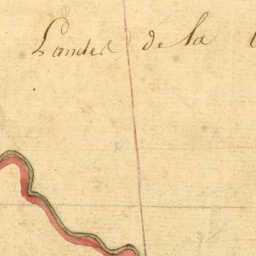 Landes de la